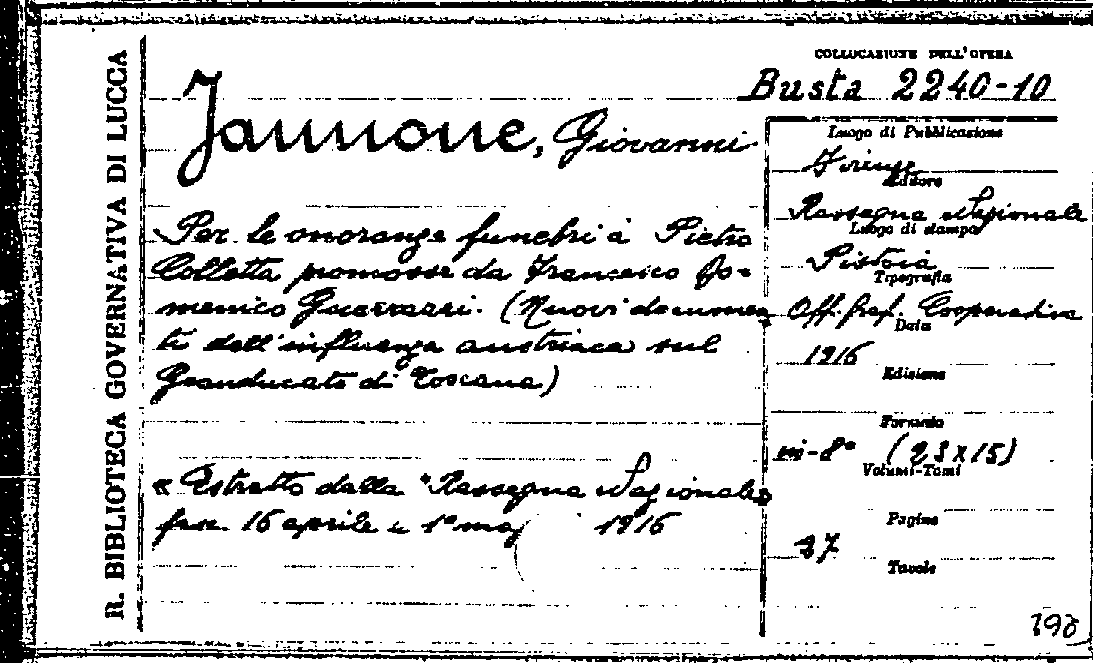 R. BIBLIOTECA GOVERNATIVA DI LUCCA
COLLOCAZIONE DELL'OPERA
Busta 2240-10
Jannone, Giovanni
Per le onoranze funebri a Pietro
Colletta promosse da Francesco Do-
menico Guerrazzi. (Nuovi documen
ti dell'influenza austriaca sul
Granducato di Toscana)
« Estratto dalla "Rassegna Nazionale»
fasc. 16 aprile e 1° mag 1916
Luogo di Pubblicazione
Firenze
Editore
Rassegna Nazionale
Luogo di stampa
Pistoia
Tipografia
Off. Graf. Cooperativa
Data
1916
Edizione
Formato
in-8° (23x15)
Volumi-Tomi
Pagine
37
Tavole